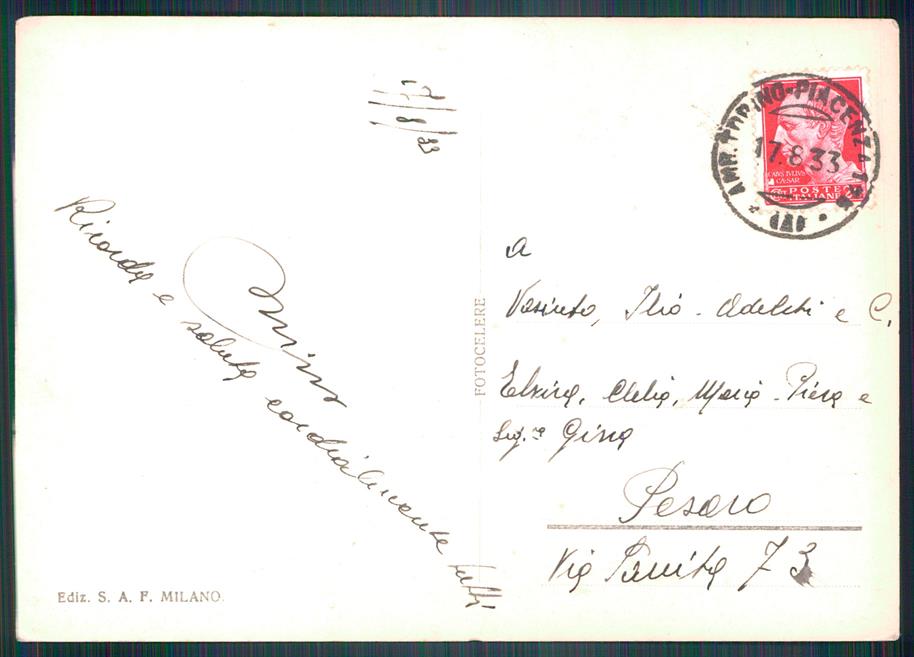 17/8/33
Ricorda e saluta cordialmente tutti
AMB. TORINO-PIACENZA
17.8.33
(A)
CAIVS IVLIVS
CÆSAR
POSTE
ITALIANE
FOTOCELERE
A
Ilio - Adelchi e C.
Elvira, Clelia, Maria - Piera e
Sig.ra Gina
Pesaro
Via 73
Ediz. S. A. F. MILANO.